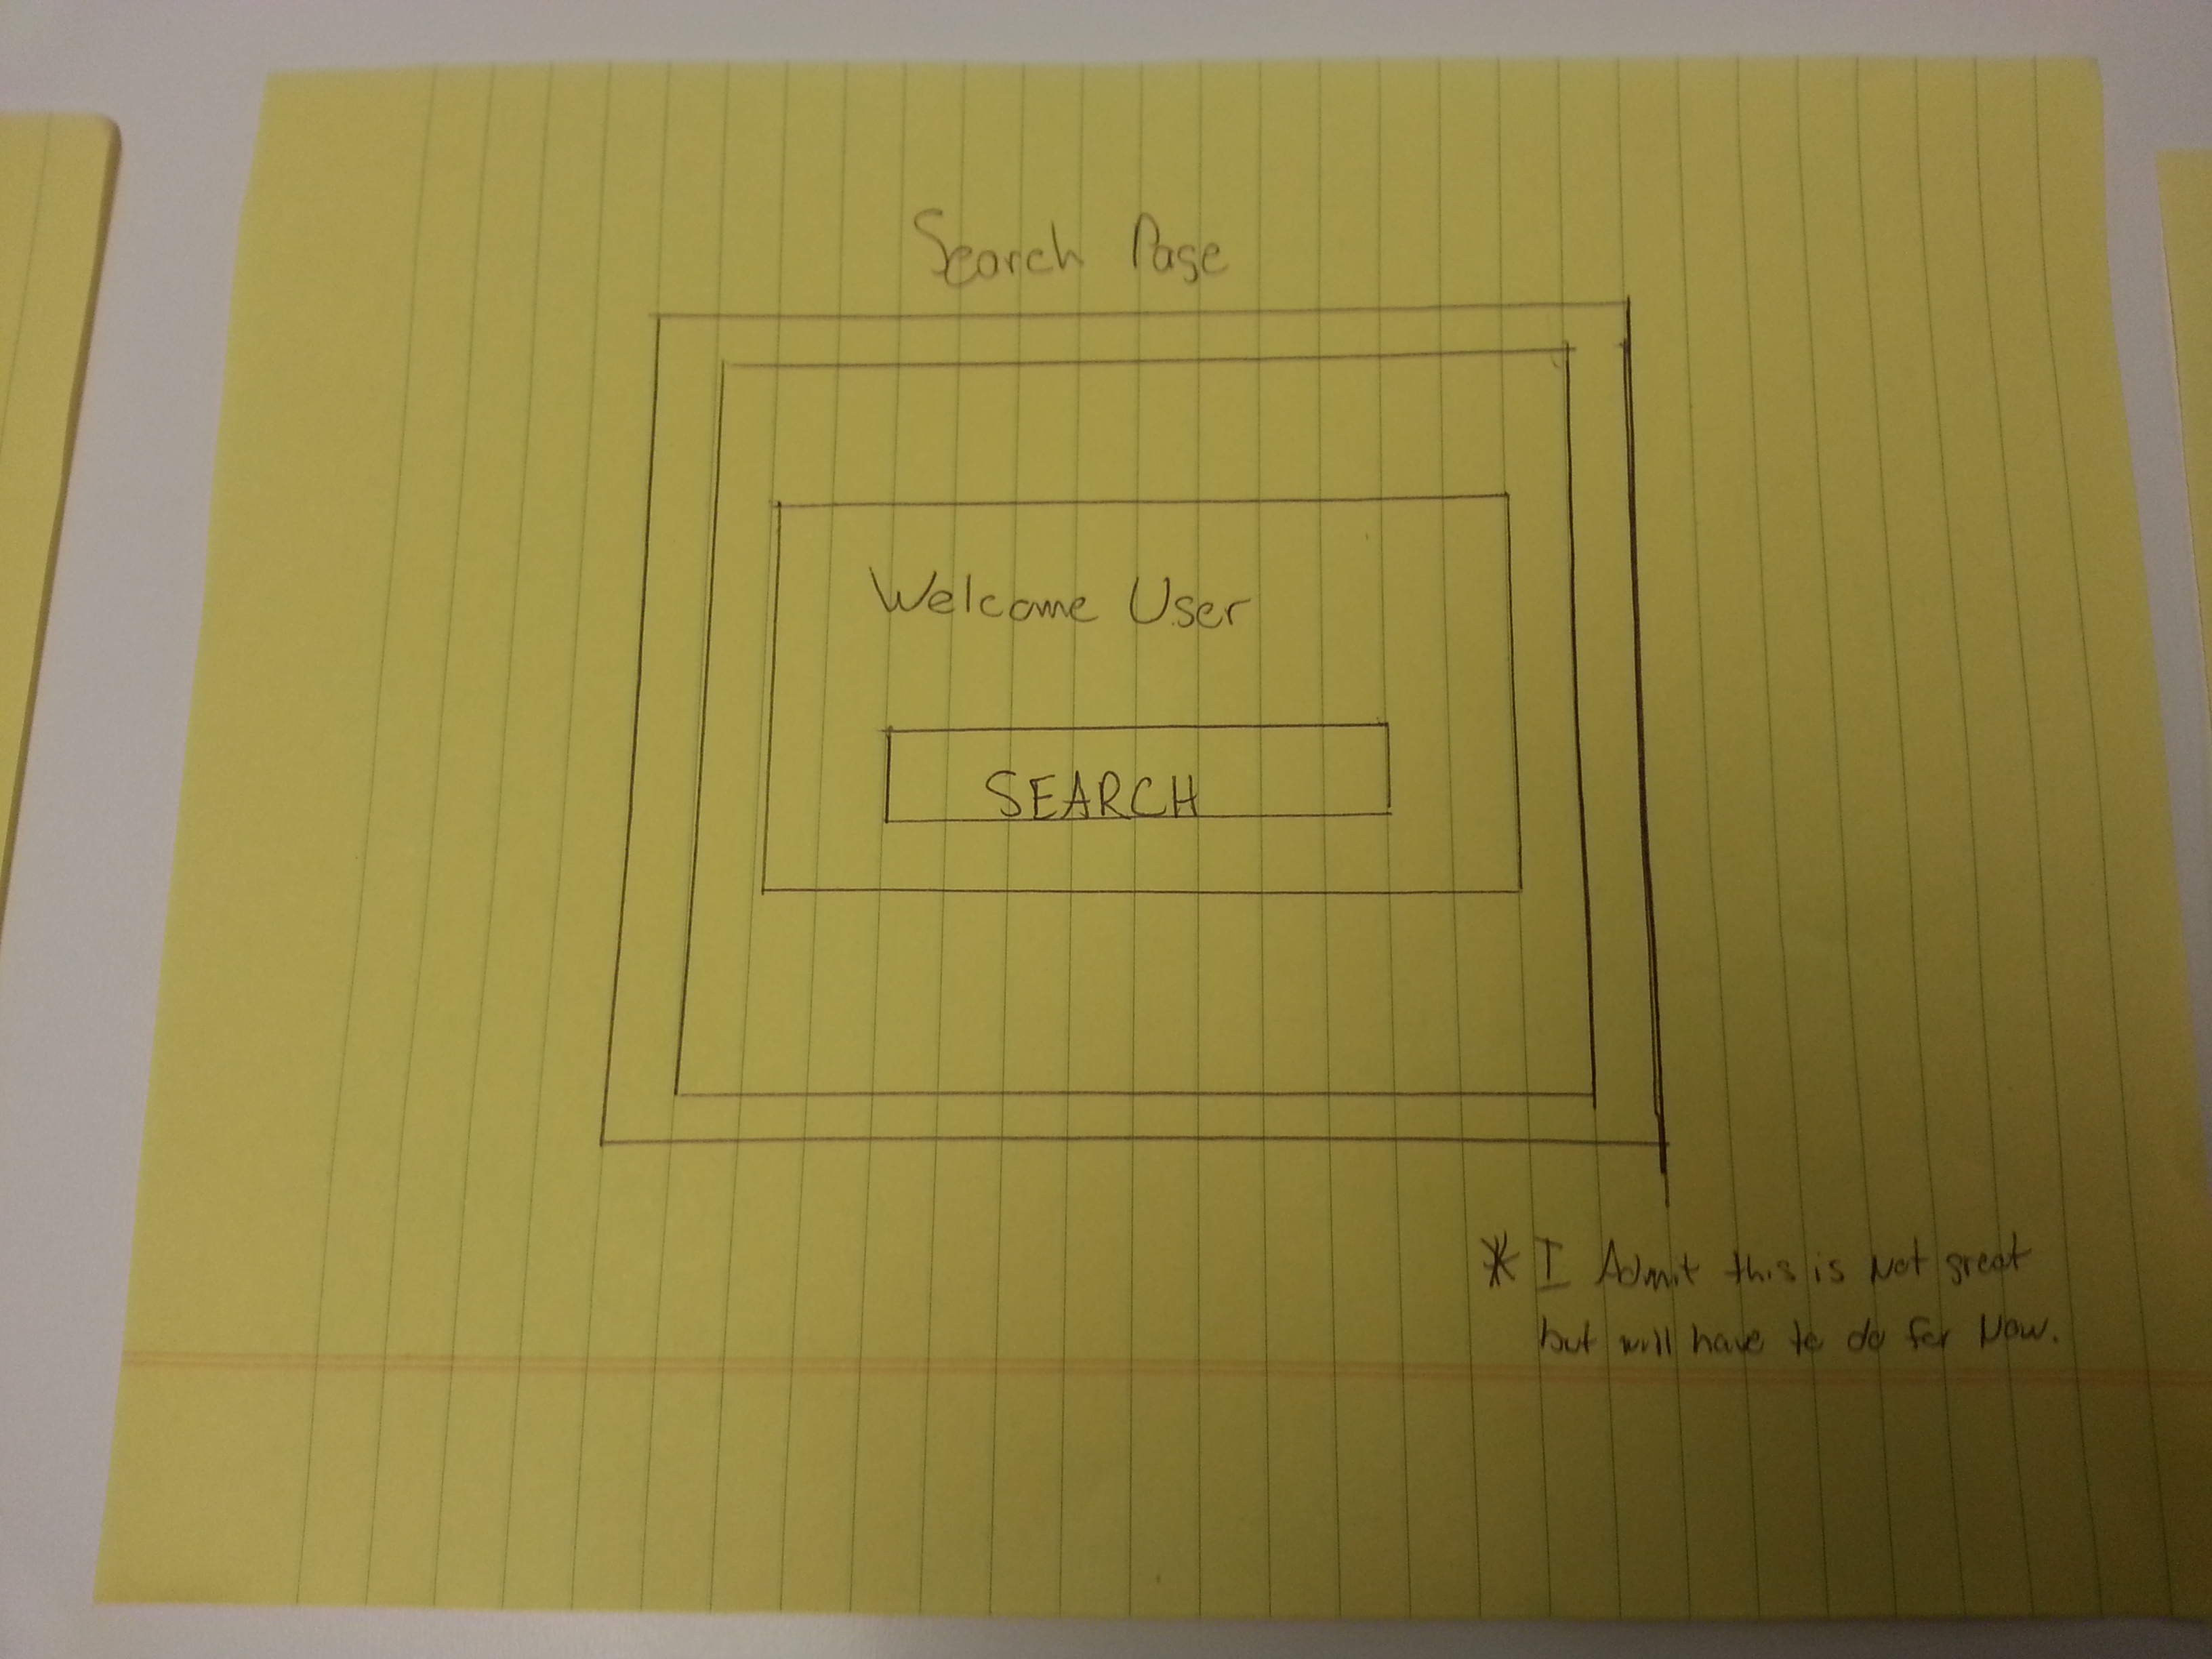 Search Page
Welcome User
SEARCH
* I Admit this is Not great
but will have to do for Now.